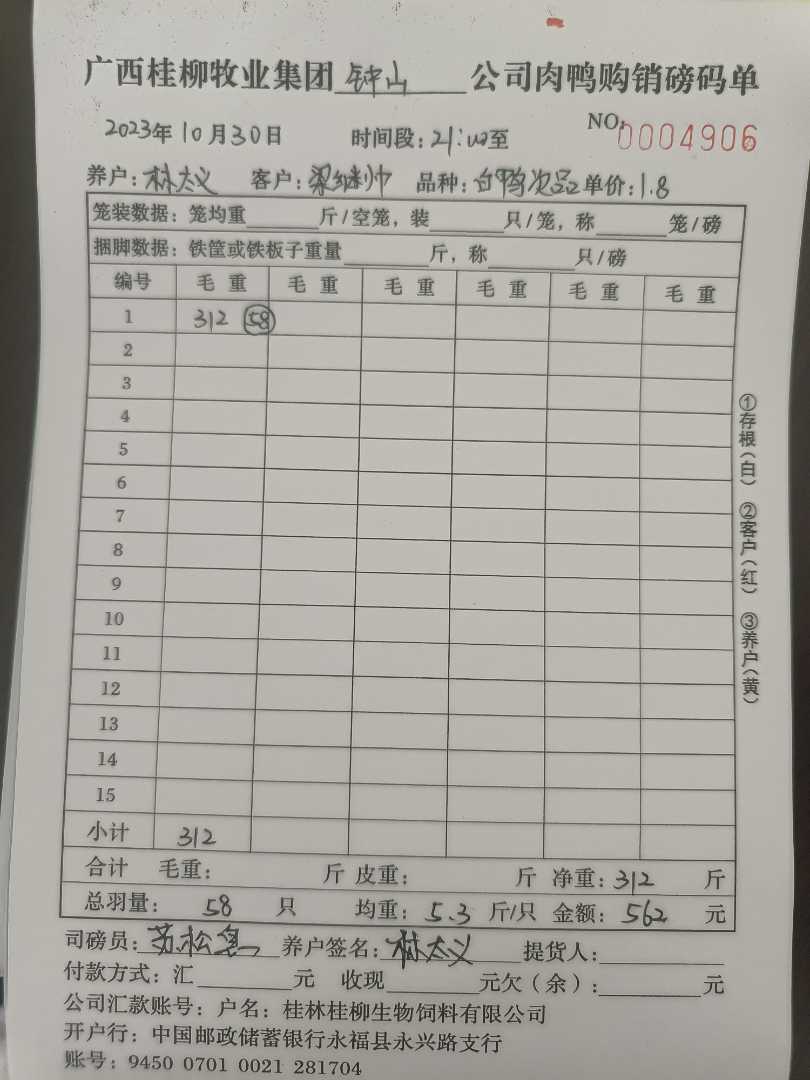 广西桂柳牧业集团 钟山 公司肉鸭购销磅码单
2023年10月30日 时间段：21:00至 NO：0004906
养户：林太义 客户：梁继帅 品种：白鸭次品 单价：1.8
笼装数据：笼均重 斤/空笼，装 只/笼，称 笼/磅
捆脚数据：铁筐或铁板子重量 斤，称 只/磅
编号 毛重 毛重 毛重 毛重 毛重 毛重
1 312 58
2
3
4
5
6
7
8
9
10
11
12
13
14
15
小计 312
合计 毛重： 斤 皮重： 斤 净重：312 斤
总羽量：58 只 均重：5.3 斤/只 金额：562 元
司磅员：苏松 养户签名：林太义 提货人：
付款方式：汇 元 收现 元欠（余）： 元
公司汇款账号：户名：桂林桂柳生物饲料有限公司
开户行：中国邮政储蓄银行永福县永兴路支行
账号：9450 0701 0021 281704
①存根（白） ②客户（红） ③养户（黄）